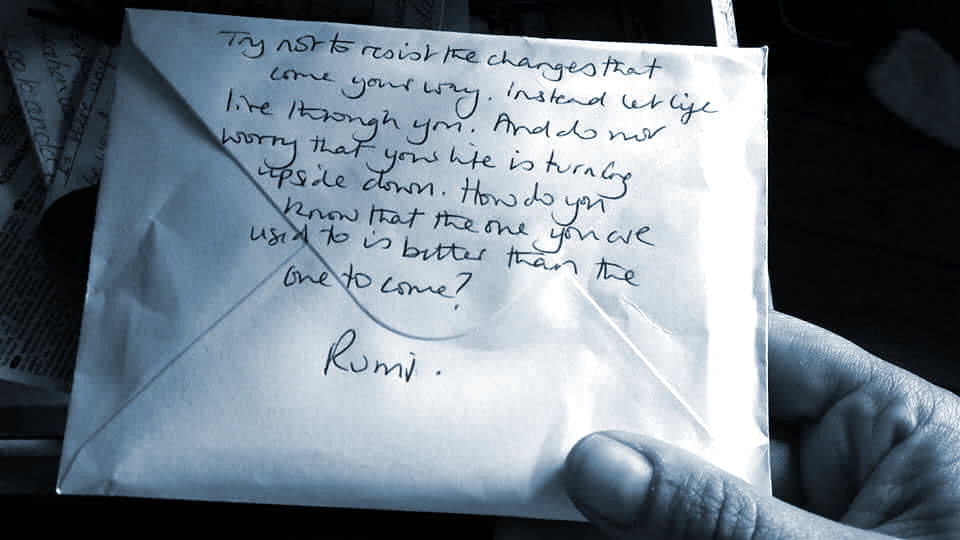 Try not to resist the changes that
come your way. Instead let life
live through you. And do not
worry that your life is turning
upside down. How do you
know that the one you are
used to is better than the
one to come?
Rumi.